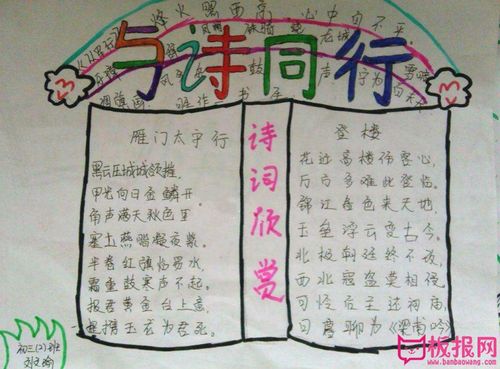 烽火照西京，心中自不平。
与诗同行
雁门太守行
黑云压城城欲摧，
甲光向日金鳞开。
角声满天秋色里，
塞上燕脂凝夜紫。
半卷红旗临易水，
霜重鼓寒声不起。
报君黄金台上意，
提携玉龙为君死。
诗词欣赏
登楼
花近高楼伤客心，
万方多难此登临。
锦江春色来天地，
玉垒浮云变古今。
北极朝廷终不改，
西北寇盗莫相侵。
可怜后主还祠庙，
日暮聊为《梁甫吟》
初三(2)班
板报网
www.banbaowang.com